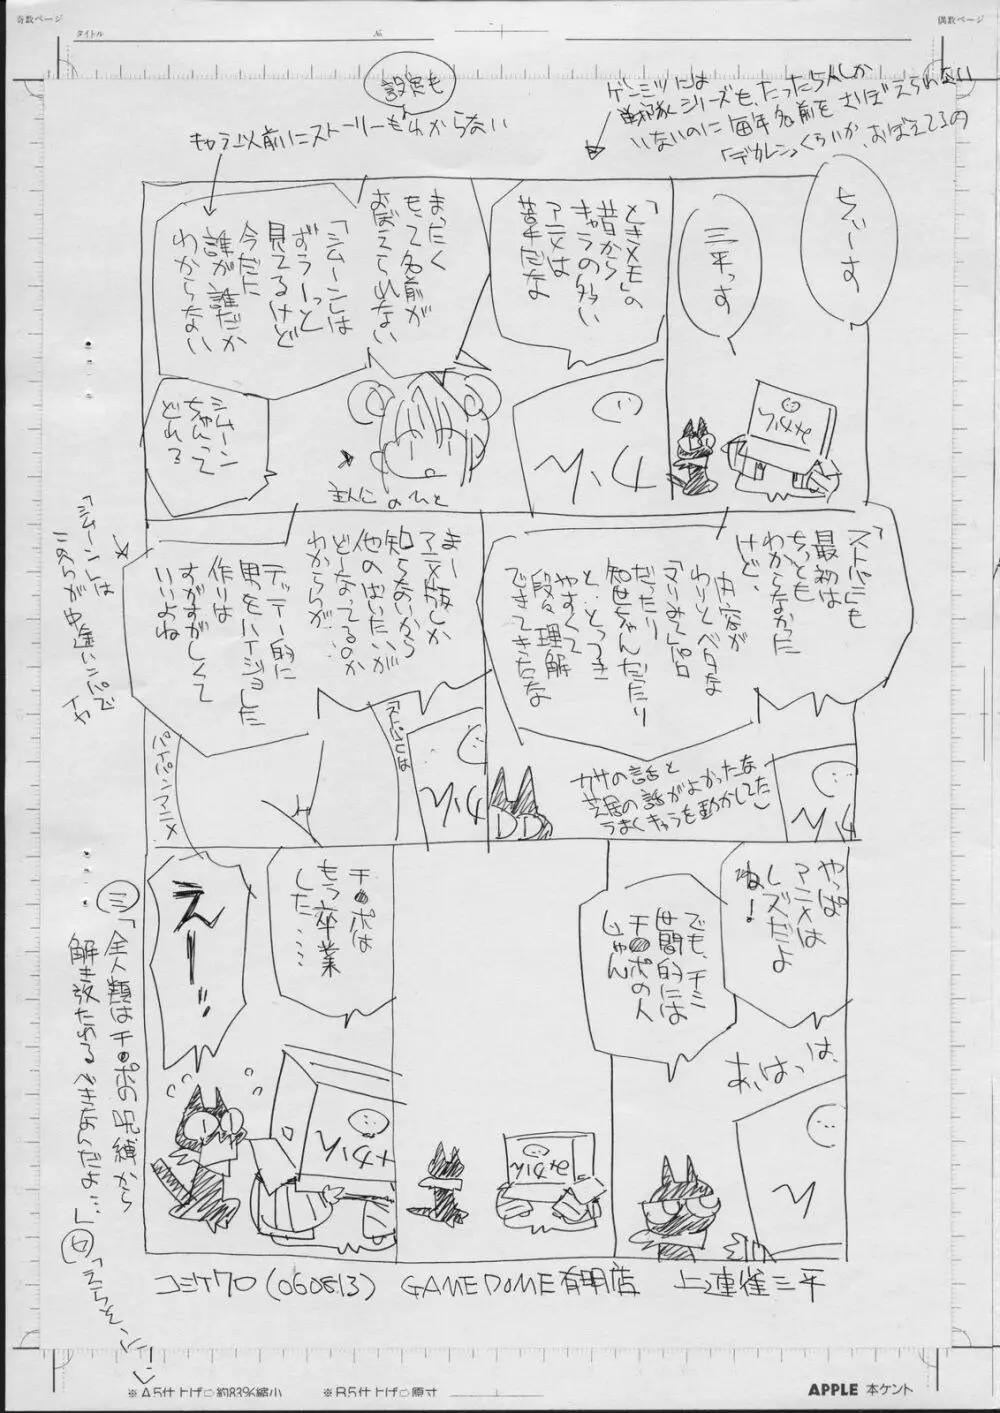 奇数ページ
偶数ページ
タイトル
№
設定も
キャラ以前にストーリーもわからない
ゲンミツには
戦隊シリーズも、たった5人しか
いないのに毎年名前をさぼえられない
「デカレン」くらいか、おぼえてるの
ちぃーす
三平っす
「ときメモ」の
昔から
キャラの多い
アニメは
苦手だな
まったく
もって名前が
おぼえられない
「シムーン」は
ずうーっと
見てるけど
今だに
誰が誰だか
わからない
シムーン
ちゃんって
どれ?
主人公のひと
「ストパニ」も
最初は
ちっとも
わからなかった
けど、
内容が
わりとベタな
「マリみて」パロ
だったり
知世ちゃんだったり
と、とっつき
やすくて
段々理解
できてきたな
カサの話と
芝居の話がよかったな
うまくキャラを動かしてた
まー
アニメ版しか
知らないから
他のはいたいが
どーなってるのか
わからんが…
テッテー的に
男をハイジョした
作りは
すがすがしくて
いいよね
「シムーン」は
このへんが中途ハンパで
イヤ
「ストパニ」は
パイパンアニメ
やっぱ
アニメは
レズだよ
ね!
でも、チミ
世間的には
チ●ポの人
じゃん
あ、はっは、
チ●ポは
もう卒業
した……
えー!!
㊂「全人類はチ●ポの呪縛から
解き放たれるべきなんだよ…」
コミケ70(060813) GAME DOME有明店 上連雀三平
※A5仕上げ○約83%縮小
※B5仕上げ○原寸
APPLE 本ケント